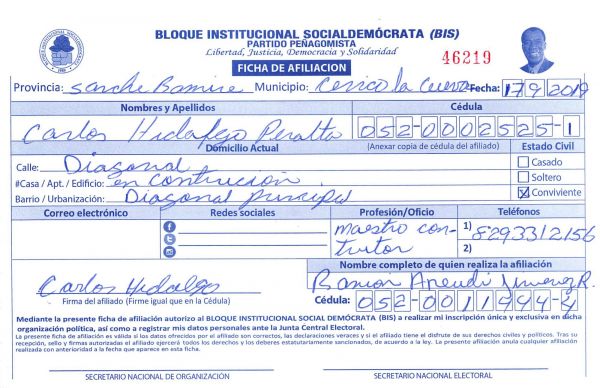 BLOQUE INSTITUCIONAL SOCIALDEMÓCRATA (BIS)
PARTIDO PEÑAGOMISTA
Libertad, Justicia, Democracia y Solidaridad
46219
FICHA DE AFILIACION
Provincia: Sanche Ramire Municipio: la Cueva Fecha: 17 9 2019
Nombres y Apellidos Cédula
Carlos Hidalgo Peralta 052-0002525-1
Domicilio Actual (Anexar copia de cédula del afiliado) Estado Civil
Calle: Diagonal Casado
#Casa / Apt. / Edificio: en contrucion Soltero
Barrio / Urbanización: Diagonal principal Conviviente
Correo electrónico Redes sociales Profesión/Oficio Teléfonos
maestro con- 1) 8293312156
trutor 2)
Nombre completo de quien realiza la afiliación
Carlos Hidalgo Ramon Jimenez R.
Firma del afiliado (Firme igual que en la Cédula) Cédula: 052-0011944-4
Mediante la presente ficha de afiliación autorizo al BLOQUE INSTITUCIONAL SOCIAL DEMÓCRATA (BIS) a realizar mi inscripción única y exclusiva en dicha
organización política, así como a registrar mis datos personales ante la Junta Central Electoral.
La presente ficha de afiliación es válida si los datos ofrecidos por el afiliado son correctos, las declaraciones veraces y si el afiliado tiene el disfrute de sus derechos civiles y políticos. Tras su
recepción, sello y firmas autorizadas el afiliado ejercerá todos los derechos y los deberes estatutariamente sancionados, de acuerdo a la ley. La presente afiliación anula cualquier afiliación
realizada con anterioridad a la fecha que aparece en esta ficha.
SECRETARIO NACIONAL DE ORGANIZACIÓN SECRETARIO NACIONAL ELECTORAL